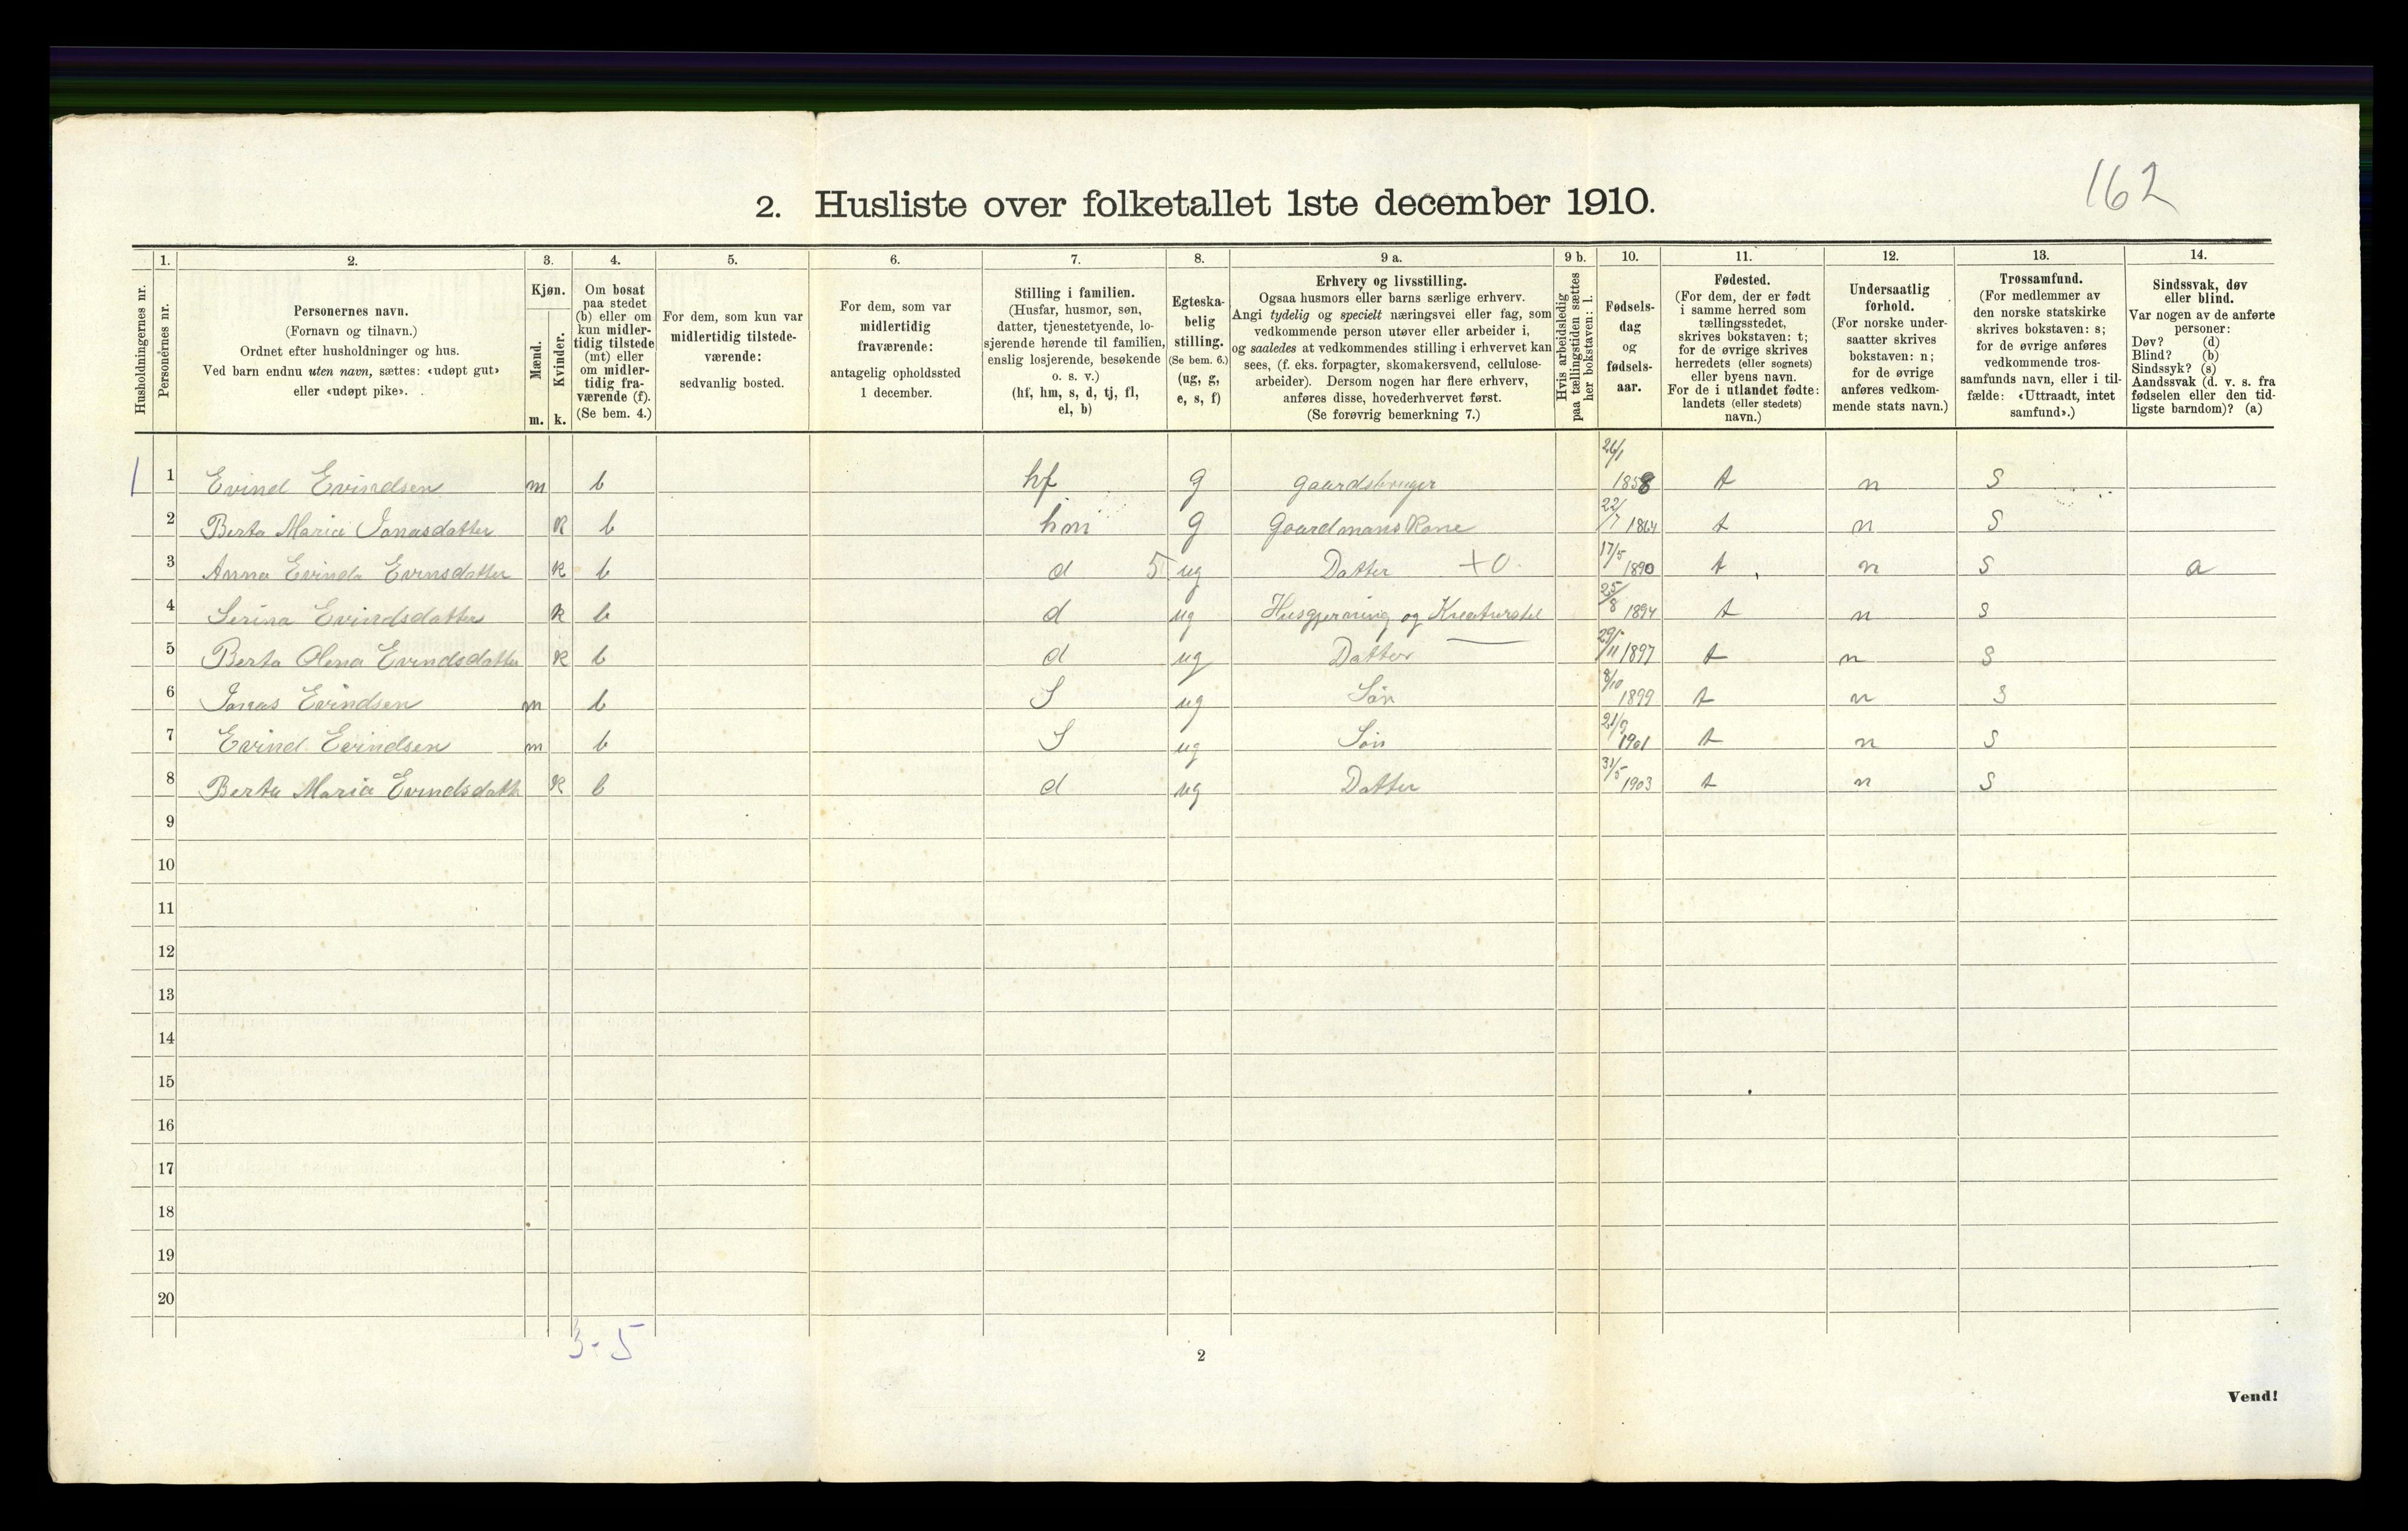 162
2. Husliste over folketallet 1ste december 1910.
Husholdningernes nr.
1.
Personernes nr.
2.
Personernes navn.
(Fornavn og tilnavn.)
Ordnet efter husholdninger og hus.
Ved barn endnu uten navn, sættes: «udøpt gut»
eller «udøpt pike».
3.
Kjøn.
Mænd.
m.
Kvinder.
k.
4.
Om bosat
paa stedet
(b) eller om
kun midler-
tidig tilstede
(mt) eller
om midler-
tidig fra-
værende (f).
(Se bem. 4.)
5.
For dem, som kun var
midlertidig tilstede-
værende:
sedvanlig bosted.
6.
For dem, som var
midlertidig
fraværende:
antagelig opholdssted
1 december.
7.
Stilling i familien.
(Husfar, husmor, søn,
datter, tjenestetyende, lo-
sjerende hørende til familien,
enslig losjerende, besøkende
o. s. v.)
(hf, hm, s, d, tj, fl,
el, b)
8.
Egteska-
belig
stilling.
(Se bem. 6.)
(ug, g,
e, s, f)
9 a.
Erhverv og livsstilling.
Ogsaa husmors eller barns særlige erhverv.
Angi tydelig og specielt næringsvei eller fag, som
vedkommende person utøver eller arbeider i,
og saaledes at vedkommendes stilling i erhvervet kan
sees, (f. eks. forpagter, skomakersvend, cellulose-
arbeider). Dersom nogen har flere erhverv,
anføres disse, hovederhvervet først.
(Se forøvrig bemerkning 7.)
9 b.
Hvis arbeidsledig
paa tællingstiden sættes
her bokstaven: l.
10.
Fødsels-
dag
og
fødsels-
aar.
11.
Fødested.
(For dem, der er født
i samme herred som
tællingsstedet,
skrives bokstaven: t;
for de øvrige skrives
herredets (eller sognets)
eller byens navn.
For de i utlandet fødte:
landets (eller stedets)
navn.)
12.
Undersaatlig
forhold.
(For norske under-
saatter skrives
bokstaven: n;
for de øvrige
anføres vedkom-
mende stats navn.)
13.
Trossamfund.
(For medlemmer av
den norske statskirke
skrives bokstaven: s;
for de øvrige anføres
vedkommende tros-
samfunds navn, eller i til-
fælde: «Uttraadt, intet
samfund».)
14.
Sindssvak, døv
eller blind.
Var nogen av de anførte
personer:
Døv? (d)
Blind? (b)
Sindssyk? (s)
Aandssvak (d. v. s. fra
fødselen eller den tid-
ligste barndom)? (a)
1 1 Evind Evindsen m b hf g gaardsbruger 26/1 1858 t n S
2 Berta Maria Jonasdatter k b hm g Gaardmans Kone 22/7 1864 t n S
3 Anna Evinda Evinsdatter k b d 5 ug Datter +0 17/5 1890 t n S a
4 Serina Evindsdatter k b d ug Husgjerning og Kreaturstel 25/8 1894 t n S
5 Berta Olena Evindsdatter k b d ug Datter 29/11 1897 t n S
6 Jonas Evindsen m b S ug Søn 8/10 1899 t n S
7 Evind Evindsen m b S ug Søn 21/9 1901 t n S
8 Berta Maria Evindsdatt k b d ug Datter 31/5 1903 t n S
9
10
11
12
13
14
15
16
17
18
19
20
3-5
2
Vend!